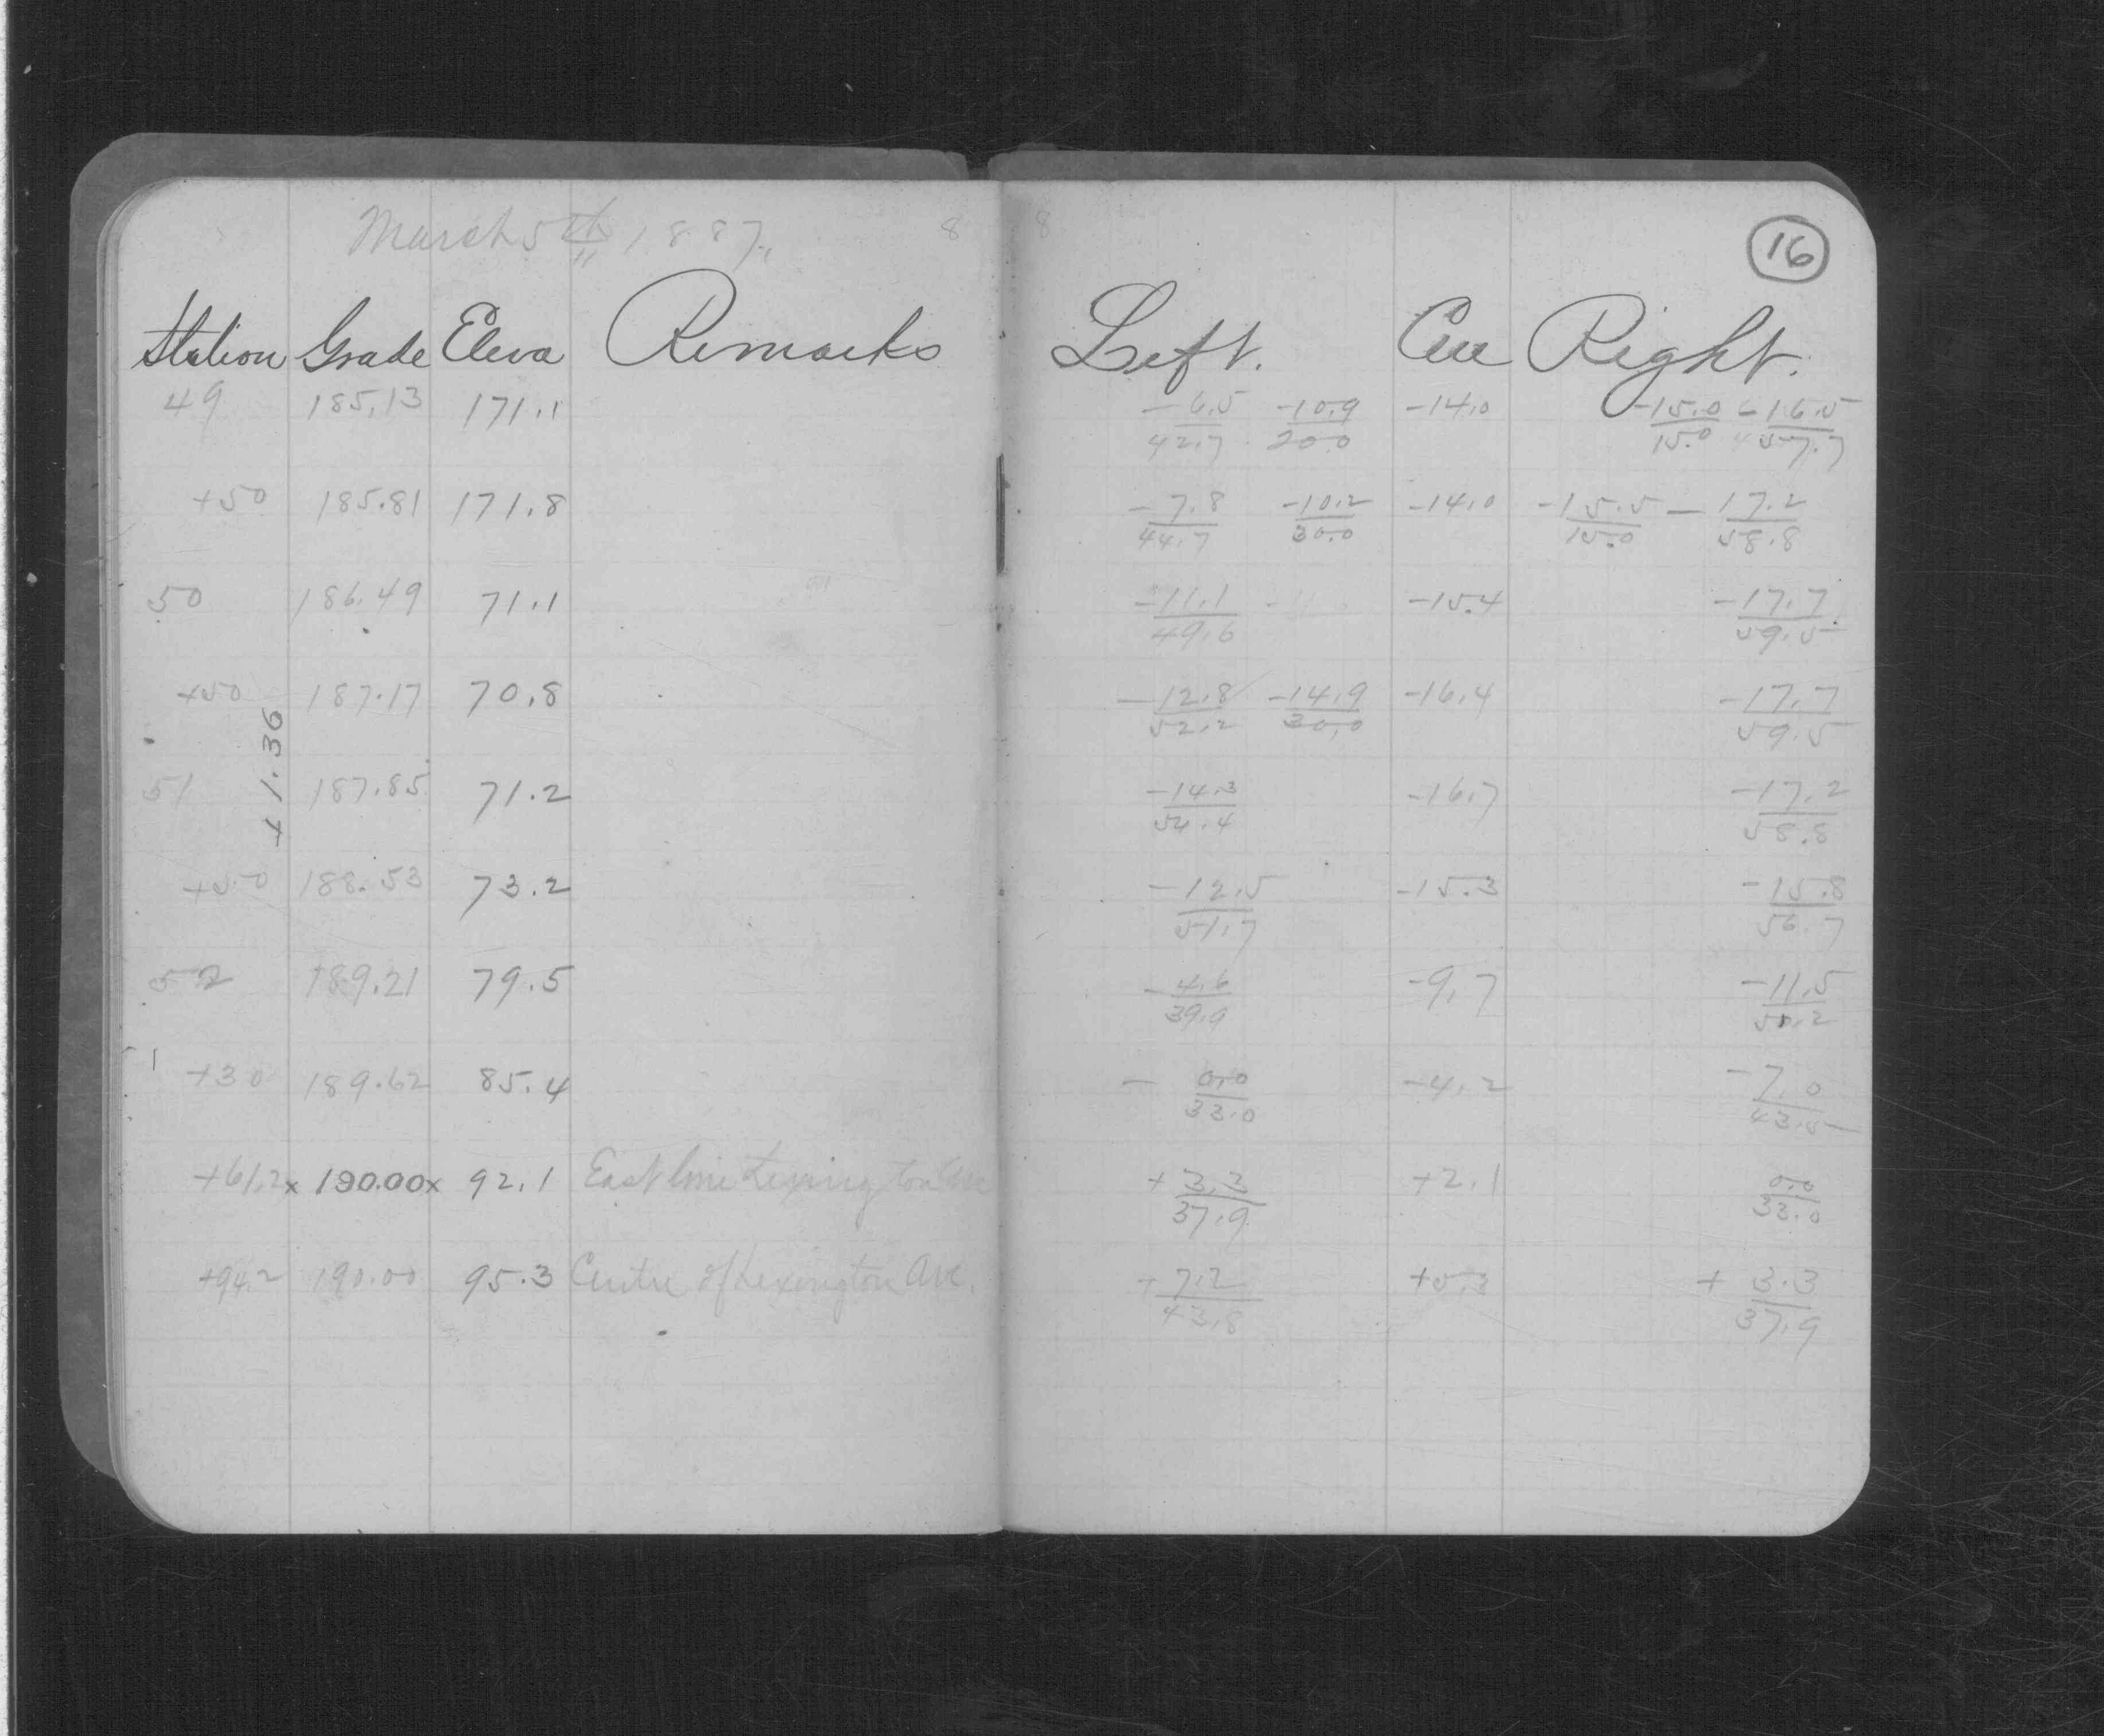 March 5th 1887, 8
Station Grade Eleva Remarks
49 185.13 171.1
+50 185.81 171.8
50 186.49 71.1
+50 187.17 70.8
+1.36
51 187.85 71.2
+50 188.53 73.2
52 189.21 79.5
+30 189.62 85.4
+61.2x 190.00x 92.1 East line Lexington Ave
+94.2 190.00 95.3 Centre of Lexington Ave.
8
16
Left. Cen Right.
-6.5 -10.9 -14.0 -15.0 -16.5
42.7 20.0 15.0 57.7
-7.8 -10.2 -14.0 -15.5 - 17.2
44.7 30.0 15.0 58.8
-11.1 -15.4 -17.7
49.6 59.5
-12.8 -14.9 -16.4 -17.7
52.2 30.0 59.5
-14.3 -16.7 -17.2
54.4 58.8
-12.5 -15.3 -15.8
51.7 56.7
-4.6 -9.7 -11.5
39.9 50.2
- 0.0 -4.2 -7.0
33.0 43.5
+3.3 +2.1 0.0
37.9 33.0
+7.2 +5.3 +3.3
43.8 37.9